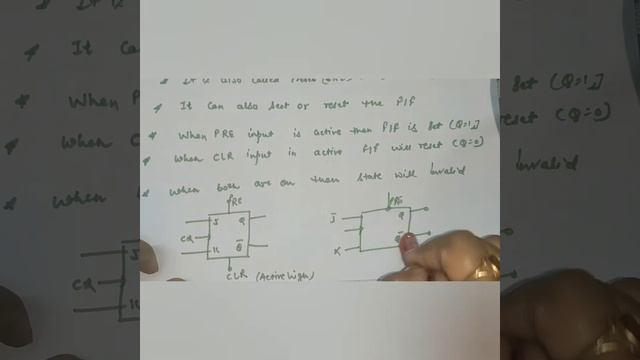 It is also called
* It can also Sect or reset the F/F
* When PRE input is active then F/F is Set (Q=1)
* When CLR input in active F/F will reset (Q=0)
* When both are on then state will Invalid
PRE PRE
J Q J̅ Q
CQ
K Q̅ K Q̅
CLR (Active high)